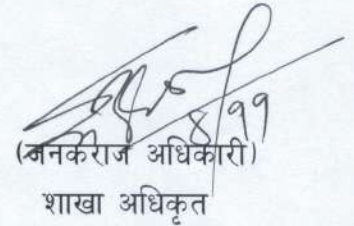 ८/११
(जनकराज अधिकारी)
शाखा अधिकृत